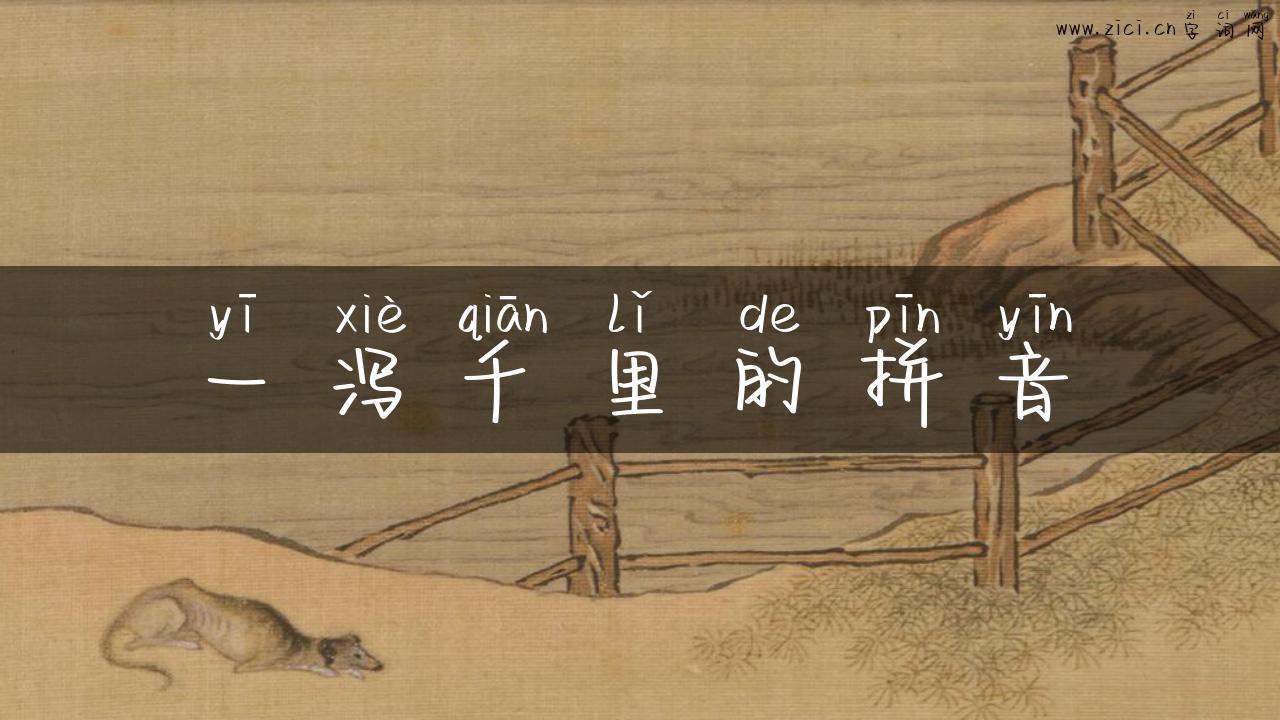 zì cí wǎng
www.zici.cn 字词网
yī xiè qiān lǐ de pīn yīn
一泻千里的拼音